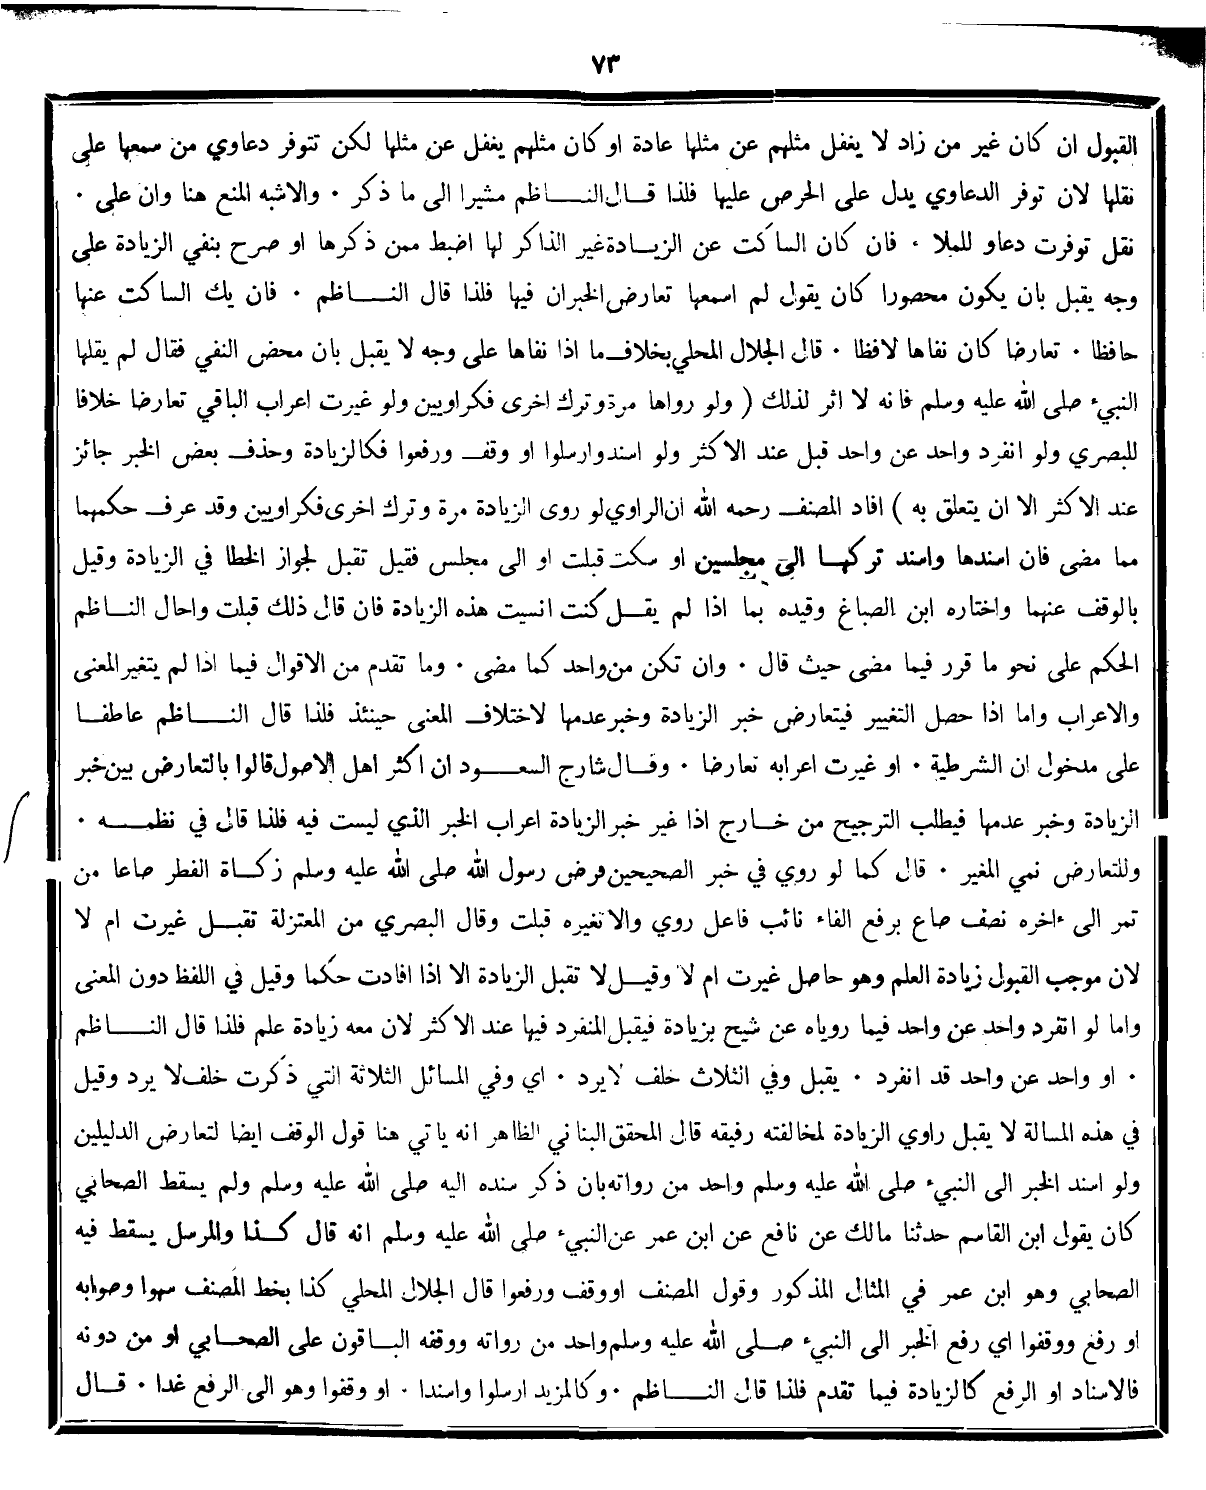 ٧٣
القبول ان كان غير من زاد لا يغفل مثلهم عن مثلها عادة او كان مثلهم يغفل عن مثلها لكن تتوفر دعاوي من سمعها على
نقلها لان توفر الدعاوي يدل على الحرص عليها فلذا قال الناظم مشيرا الى ما ذكر ٠ والاشبه المنع هنا وان على ٠
نقل توفرت دعاو للملا ٠ فان كان الساكت عن الزيادة غير الذاكر لها اضبط ممن ذكرها او صرح بنفي الزيادة على
وجه يقبل بان يكون محصورا كان يقول لم اسمعها تعارض الخبران فيها فلذا قال الناظم ٠ فان يك الساكت عنها
حافظا ٠ تعارضا كان نفاها لافظا ٠ قال الجلال المحلي بخلاف ما اذا نفاها على وجه لا يقبل بان محض النفي فقال لم يقلها
النبيء صلى الله عليه وسلم فانه لا اثر لذلك ( ولو رواها مرة وترك اخرى فكراويين ولو غيرت اعراب الباقي تعارضا خلافا
للبصري ولو انفرد واحد عن واحد قبل عند الاكثر ولو اسند وارسلوا او وقف ورفعوا فكالزيادة وحذف بعض الخبر جائز
عند الاكثر الا ان يتعلق به ) افاد المصنف رحمه الله ان الراوي لو روى الزيادة مرة وترك اخرى فكراويين وقد عرف حكمهما
مما مضى فان اسندها واسند تركها الى مجلسين او سكت قبلت او الى مجلس فقيل تقبل لجواز الخطا في الزيادة وقيل
بالوقف عنهما واختاره ابن الصباغ وقيده بما اذا لم يقل كنت انسيت هذه الزيادة فان قال ذلك قبلت واحال الناظم
الحكم على نحو ما قرر فيما مضى حيث قال ٠ وان تكن من واحد كما مضى ٠ وما تقدم من الاقوال فيما اذا لم يتغير المعنى
والاعراب واما اذا حصل التغيير فيتعارض خبر الزيادة وخبر عدمها لاختلاف المعنى حينئذ فلذا قال الناظم عاطفا
على مدخول ان الشرطية ٠ او غيرت اعرابه تعارضا ٠ وقال شارح السعود ان اكثر اهل الاصول قالوا بالتعارض بين خبر
الزيادة وخبر عدمها فيطلب الترجيح من خارج اذا غير خبر الزيادة اعراب الخبر الذي ليست فيه فلذا قال في نظمه ٠
وللتعارض نمي المغير ٠ قال كما لو روي في خبر الصحيحين فرض رسول الله صلى الله عليه وسلم زكاة الفطر صاعا من
تمر الى ءاخره نصف صاع برفع الفاء نائب فاعل روي والا تغيره قبلت وقال البصري من المعتزلة تقبل غيرت ام لا
لان موجب القبول زيادة العلم وهو حاصل غيرت ام لا وقيل لا تقبل الزيادة الا اذا افادت حكما وقيل في اللفظ دون المعنى
واما لو انفرد واحد عن واحد فيما روياه عن شيخ بزيادة فيقبل المنفرد فيها عند الاكثر لان معه زيادة علم فلذا قال الناظم
٠ او واحد عن واحد قد انفرد ٠ يقبل وفي الثلاث خلف لا يرد ٠ اي وفي المسائل الثلاثة التي ذكرت خلف لا يرد وقيل
في هذه المسالة لا يقبل راوي الزيادة لمخالفته رفيقه قال المحقق البناني الظاهر انه ياتي هنا قول الوقف ايضا لتعارض الدليلين
ولو اسند الخبر الى النبيء صلى الله عليه وسلم واحد من رواته بان ذكر سنده اليه صلى الله عليه وسلم ولم يسقط الصحابي
كان يقول ابن القاسم حدثنا مالك عن نافع عن ابن عمر عن النبيء صلى الله عليه وسلم انه قال كذا والمرسل يسقط فيه
الصحابي وهو ابن عمر في المثال المذكور وقول المصنف او وقف ورفعوا قال الجلال المحلي كذا بخط المصنف سهوا وصوابه
او رفع ووقفوا اي رفع الخبر الى النبيء صلى الله عليه وسلم واحد من رواته ووقفه الباقون على الصحابي او من دونه
فالاسناد او الرفع كالزيادة فيما تقدم فلذا قال الناظم ٠ وكالمزيد ارسلوا واسندا ٠ او وقفوا وهو الى الرفع غدا ٠ قال